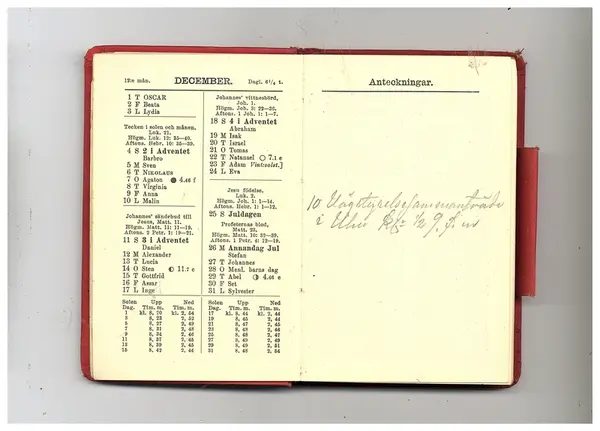 12:te mån. DECEMBER. Dagl. 6¼ t.
1 T OSCAR
2 F Beata
3 L Lydia
Tecken i solen och månen,
Luk. 21.
Högm. Luk. 12: 35—40.
Aftons. Hebr. 10: 35—39.
4 S 2 i Adventet
Barbro
5 M Sven
6 T NIKOLAUS
7 O Agaton
8 T Virginia
9 F Anna
10 L Malin
Johannes' sändebud till
Jesus, Matt. 11.
Högm. Matt. 11: 11—19.
Aftons. 2 Petr. 1: 19—21.
11 S 3 i Adventet
Daniel
12 M Alexander
13 T Lucia
14 O Sten 11.7 e
15 T Gottfrid
16 F Assar
17 L Inge
Johannes' vittnesbörd,
Joh. 1.
Högm. Joh. 3: 22—36.
Aftons. 1 Joh. 1: 1—7.
18 S 4 i Adventet
Abraham
19 M Isak
20 T Israel
21 O Tomas
22 T Natanael 7.1 e
23 F Adam Vint:solst.]
24 L Eva
Jesu födelse,
Luk. 2.
Högm. Joh. 1: 1—14.
Aftons. Hebr. 1: 1—12.
25 S Juldagen
Profeternas blod,
Matt. 23.
Högm. Matt. 10: 32—39.
Aftons. 1 Petr. 4: 12—19.
26 M Annandag Jul
Stefan
27 T Johannes
28 O Menl. barns dag
29 T Abel 4.46 e
30 F Set
31 L Sylvester
Solen Upp Ned
Dag. Tim. m. Tim. m.
1 kl. 8, 20 kl. 2, 54
3 8, 23 2, 52
5 8, 27 2, 49
7 8, 31 2, 48
9 8, 34 2, 46
11 8, 37 2, 45
13 8, 39 2, 45
15 8, 42 2, 44
Solen Upp Ned
Dag. Tim. m. Tim. m.
17 kl. 8, 44 kl. 2, 44
19 8, 45 2, 44
21 8, 46 2, 44
23 8, 48 2, 46
25 8, 48 2, 47
27 8, 49 2, 49
29 8, 49 2, 51
31 8, 48 2, 54
Anteckningar.
10 Vägstyrelsesammanträde
i